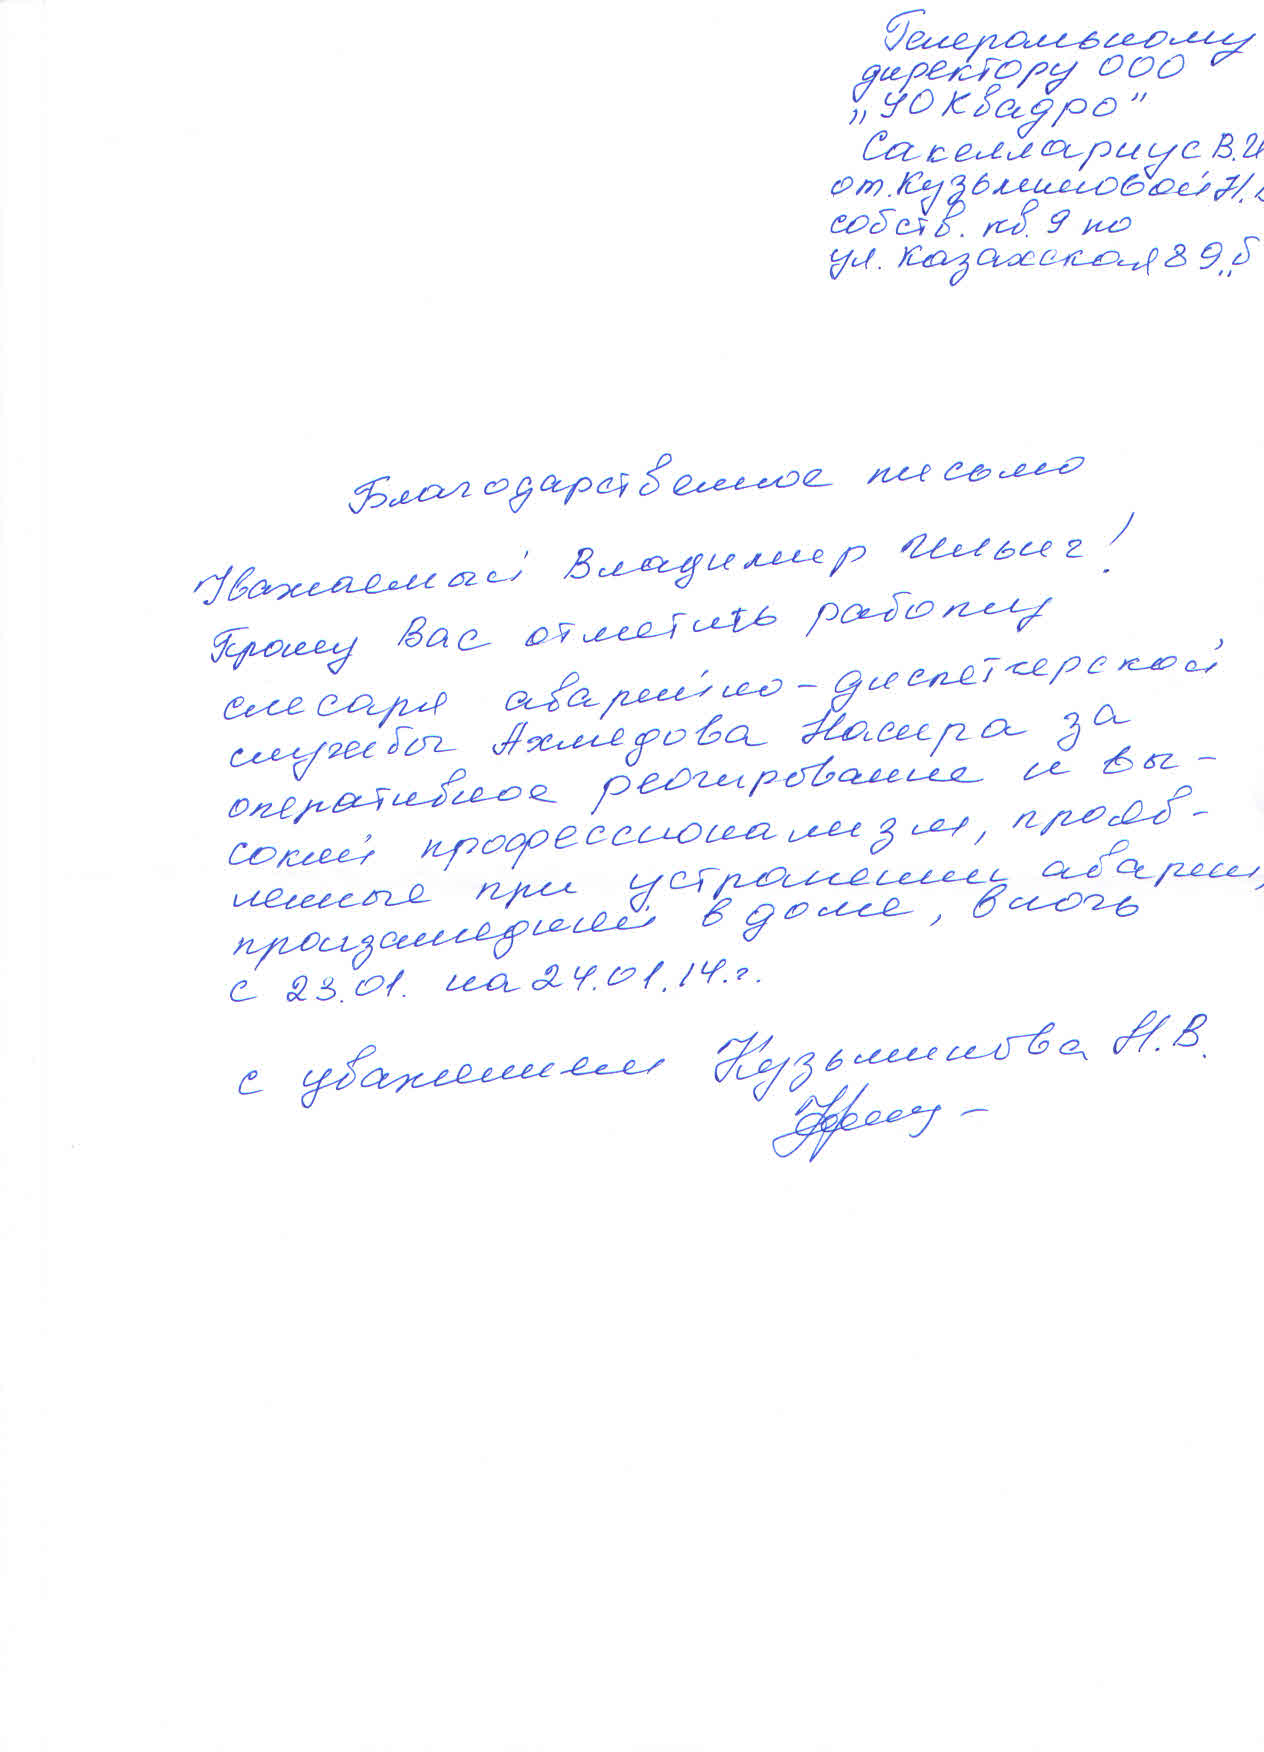 Генеральному
директору ООО
„УО Квадро"
Сакеллариус В.И
от Кузьминовой Н.В
собств. кв. 9 по
ул. Казахская 89 „б
Благодарственное письмо
Уважаемый Владимир Ильич!
Прошу Вас отметить работу
слесаря аварийно-диспетчерской
службы Ахмедова Насира за
оперативное реагирование и вы-
сокий профессионализм, прояв-
ленные при устранении аварии,
произашедшей в доме, в ночь
с 23.01. на 24.01.14.г.
с уважением Кузьминова Н.В.